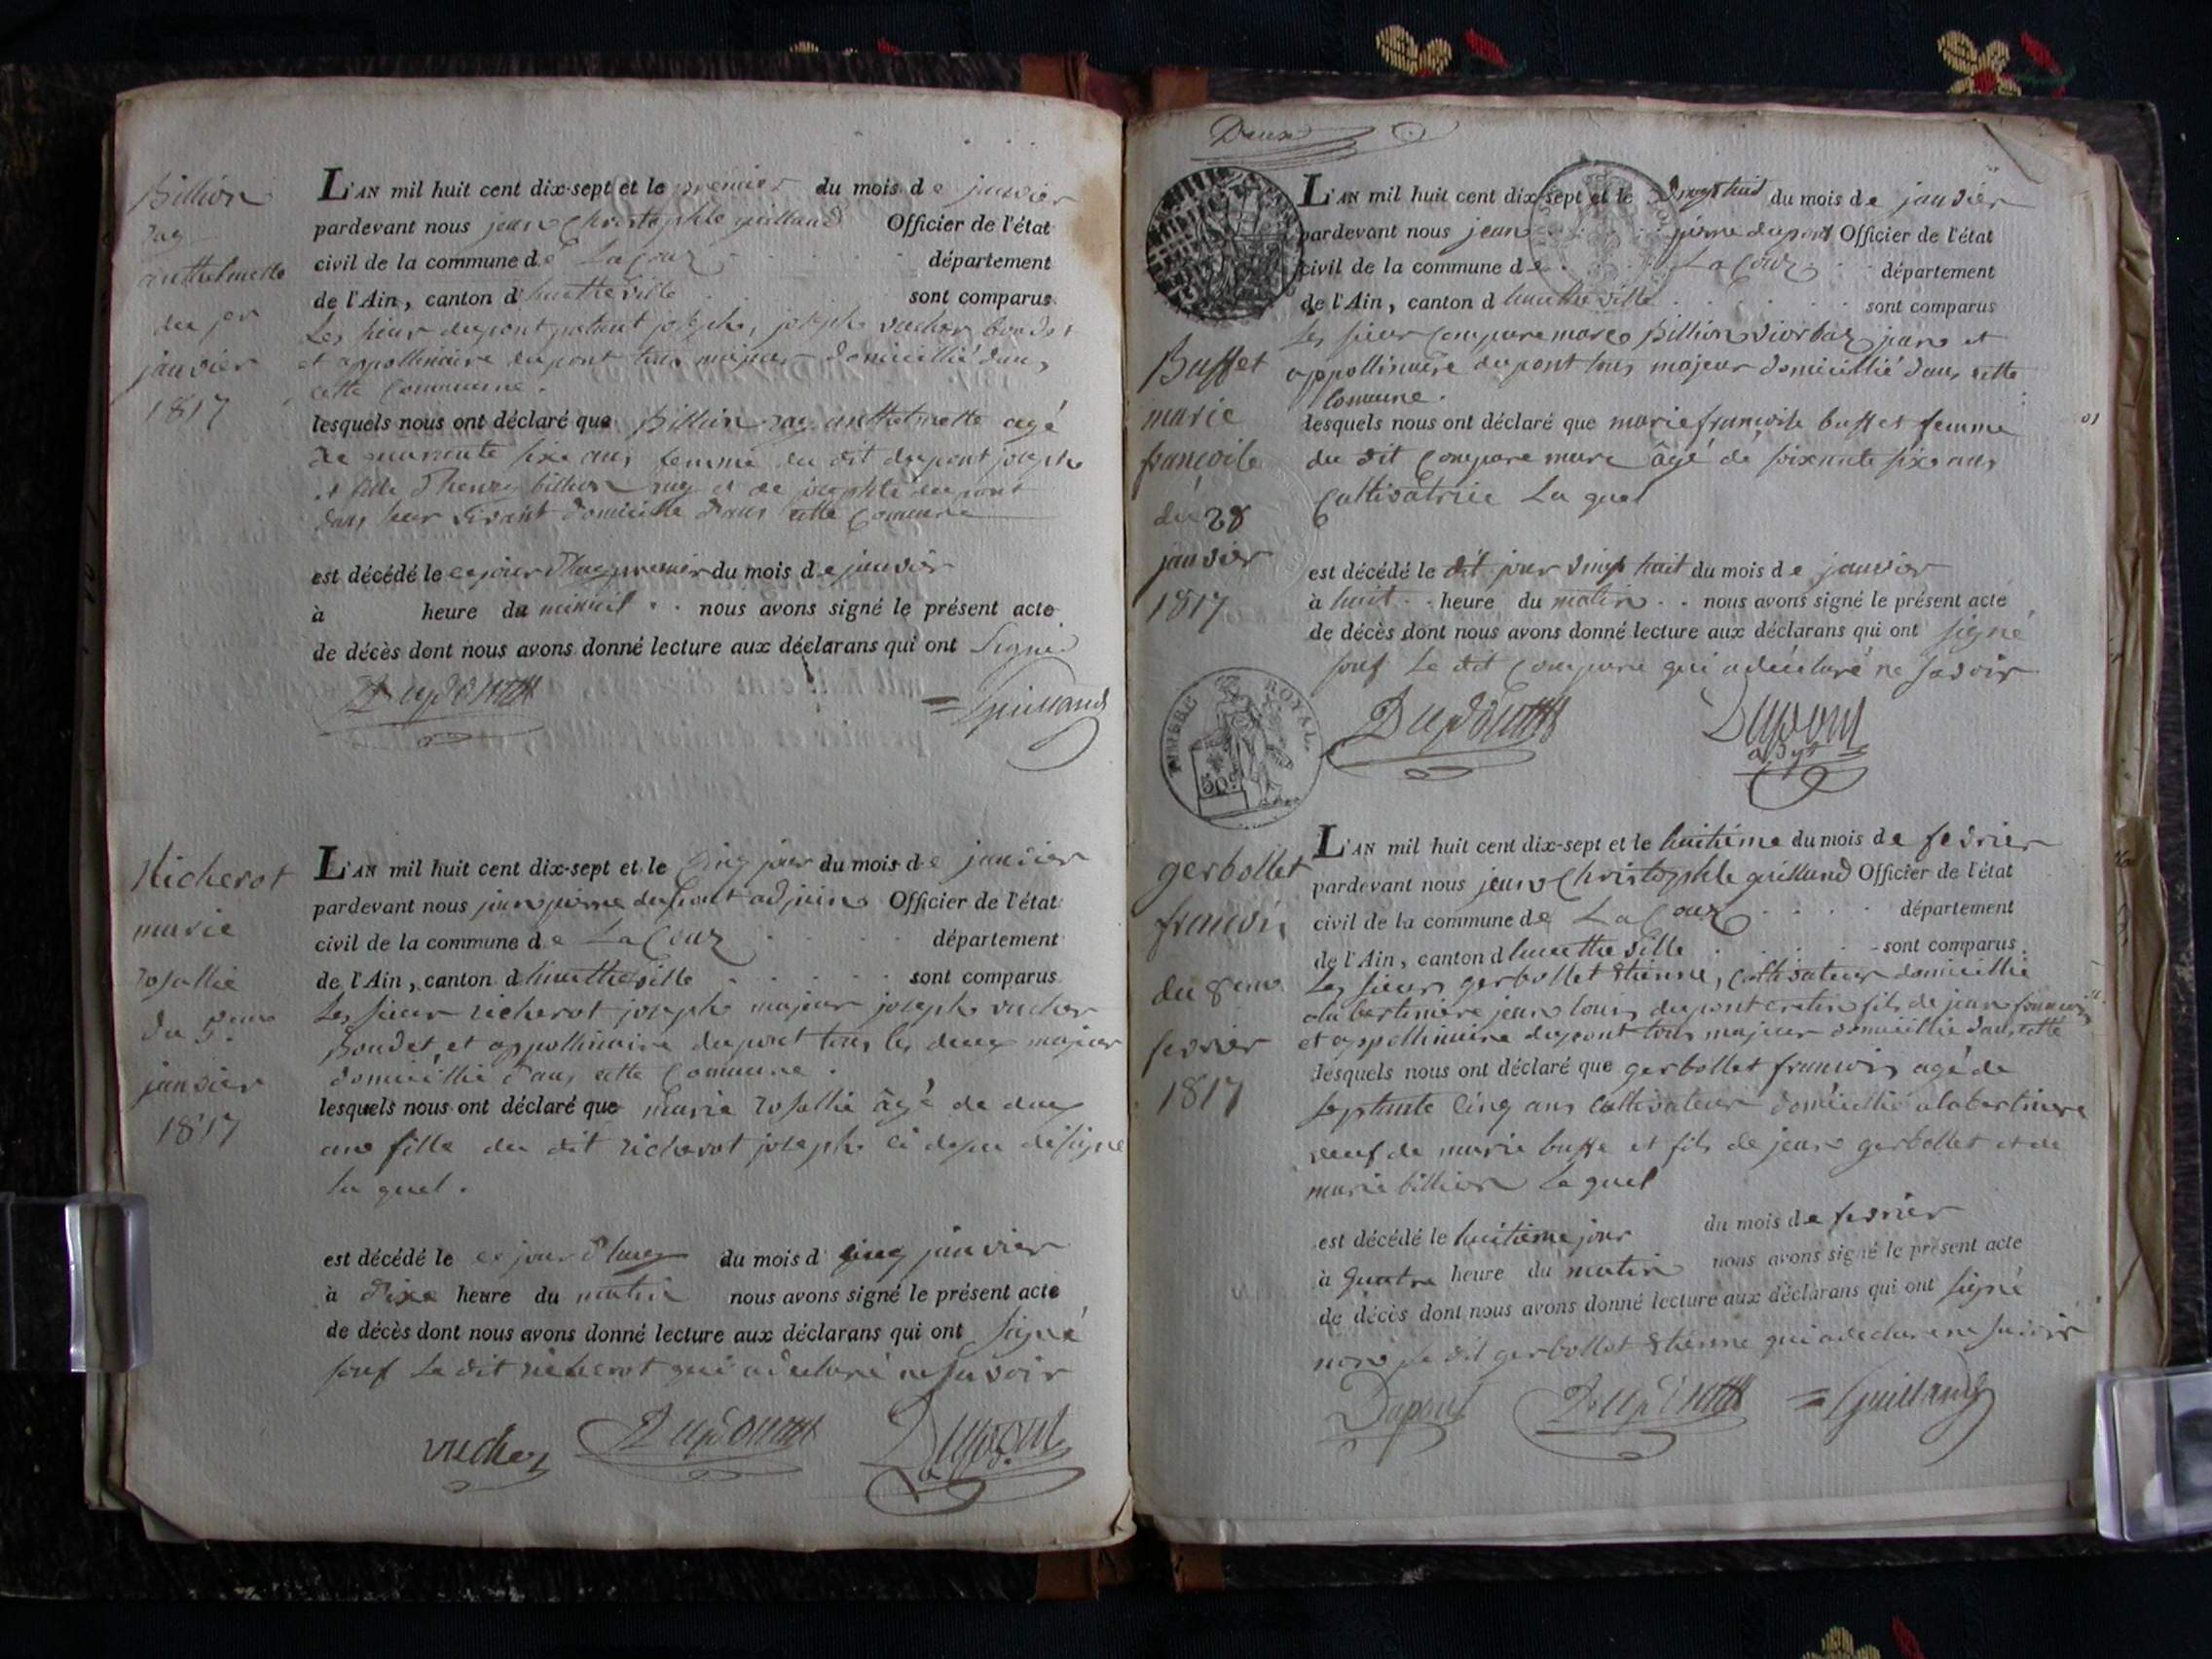 Billion
Ray
anthelmette
du 1er
janvier
1817
L'AN mil huit cent dix-sept et le premier du mois de janvier
pardevant nous jean Christophle guilland Officier de l'état
civil de la commune de La Coux département
de l'Ain, canton d'hautheville sont comparus
Les sieur dupont joseph, joseph vucher boudet
et appollinaire dupont tous majeur domicillié dans
cette Commune.
lesquels nous ont déclaré que Billion ray anthelmette agé
de quarante sixe ans femme du dit dupont joseph
et fille d'henry billion ray et de josephte dupont
dans leur vivant domicillé dans cette Comune
est décédé le ce jour d'huy premier du mois de janvier
à heure du minuit nous avons signé le présent acte
de décès dont nous avons donné lecture aux déclarans qui ont Signé
Dupont = Guilland
Richerot
marie
rosallie
du 5eme
janvier
1817
L'AN mil huit cent dix-sept et le Cinq jour du mois de janvier
pardevant nous jean pierre dupont adjoin Officier de l'état
civil de la commune de La Coux département
de l'Ain, canton d hautheville sont comparus
Les sieur richerot joseph majeur joseph vucher
Boudet, et appollinaire dupont tous les deux majeur
domicillié dans cette Commune.
lesquels nous ont déclaré que maria rosallie âgé de deux
ans fille du dit richerot joseph ci desu désigné
la quel.
est décédé le ce jour d'huy du mois d cinq janvier
à dixe heure du matin nous avons signé le présent acte
de décès dont nous avons donné lecture aux déclarans qui ont signé
souf Le dit richerot qui a declaré ne savoir
vucher Dupont Dupont
Deux
L'AN mil huit cent dix-sept et le vingt huit du mois de janvier
pardevant nous jean pierre dupont Officier de l'état
civil de la commune de La Coux département
de l'Ain, canton d hautheville sont comparus
Buffet
marie
françoise
du 28
janvier
1817
Les sieur Compare marc Billion jean et
appollinaire dupont tous majeur domicillié dans cette
Comune.
lesquels nous ont déclaré que marie françoise buffet femme
du dit Compare marc âgé de soixante sixe ans
Cultivatrice La quel
est décédé le dit jour vingt huit du mois de janvier
à huit heure du matin nous avons signé le présent acte
de décès dont nous avons donné lecture aux déclarans qui ont signé
souf Le dit Compare qui a déclaré ne savoir
TIMBRE ROYAL
50c
Dupont Dupont
gerbollet
françois
du 8eme
fevrier
1817
L'AN mil huit cent dix-sept et le huitième du mois de fevrier
pardevant nous jean Christophle guilland Officier de l'état
civil de la commune de La Coux département
de l'Ain, canton d hautheville sont comparus
Les sieurs gerbollet Etienne, Cultivateur domicillié
a la bertiniere jean louis dupont cretin fils de jean françois
et appollinaire dupont tous majeur domicillié dans cette
lesquels nous ont déclaré que gerbollet françois agé de
septante Cinq ans Cultivateur domicillié a la bertinere
veuf de marie buffe et fils de jean gerbollet et de
marie billion Le quel
est décédé le huitième jour du mois de fevrier
à quatre heure du matin nous avons signé le présent acte
de décès dont nous avons donné lecture aux déclarans qui ont signé
non le dit gerbollet Etienne qui a declare ne savoir
Dupont Dupont = Guilland